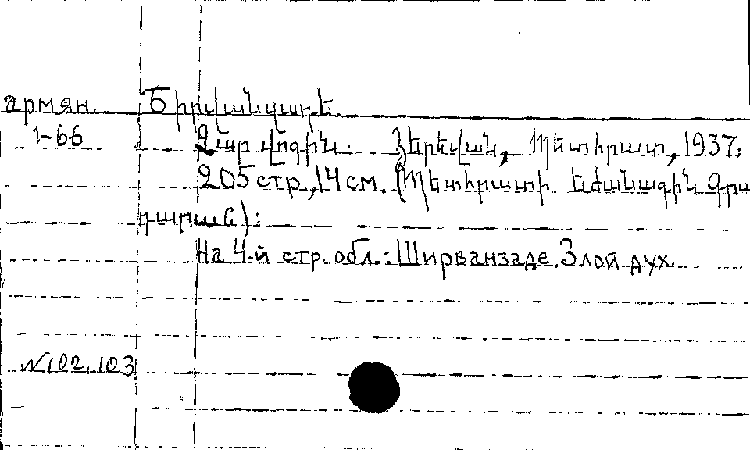 армян. Շիրվանզադե.
1-66 Չար վոգին. Յերեվան, Պետհրատ, 1937.
205 стр., 14 см. (Պետհրատի եժանագին գրա
դարան):
На 4-й стр. обл.: Ширванзаде. Злой дух.
N 102, 103